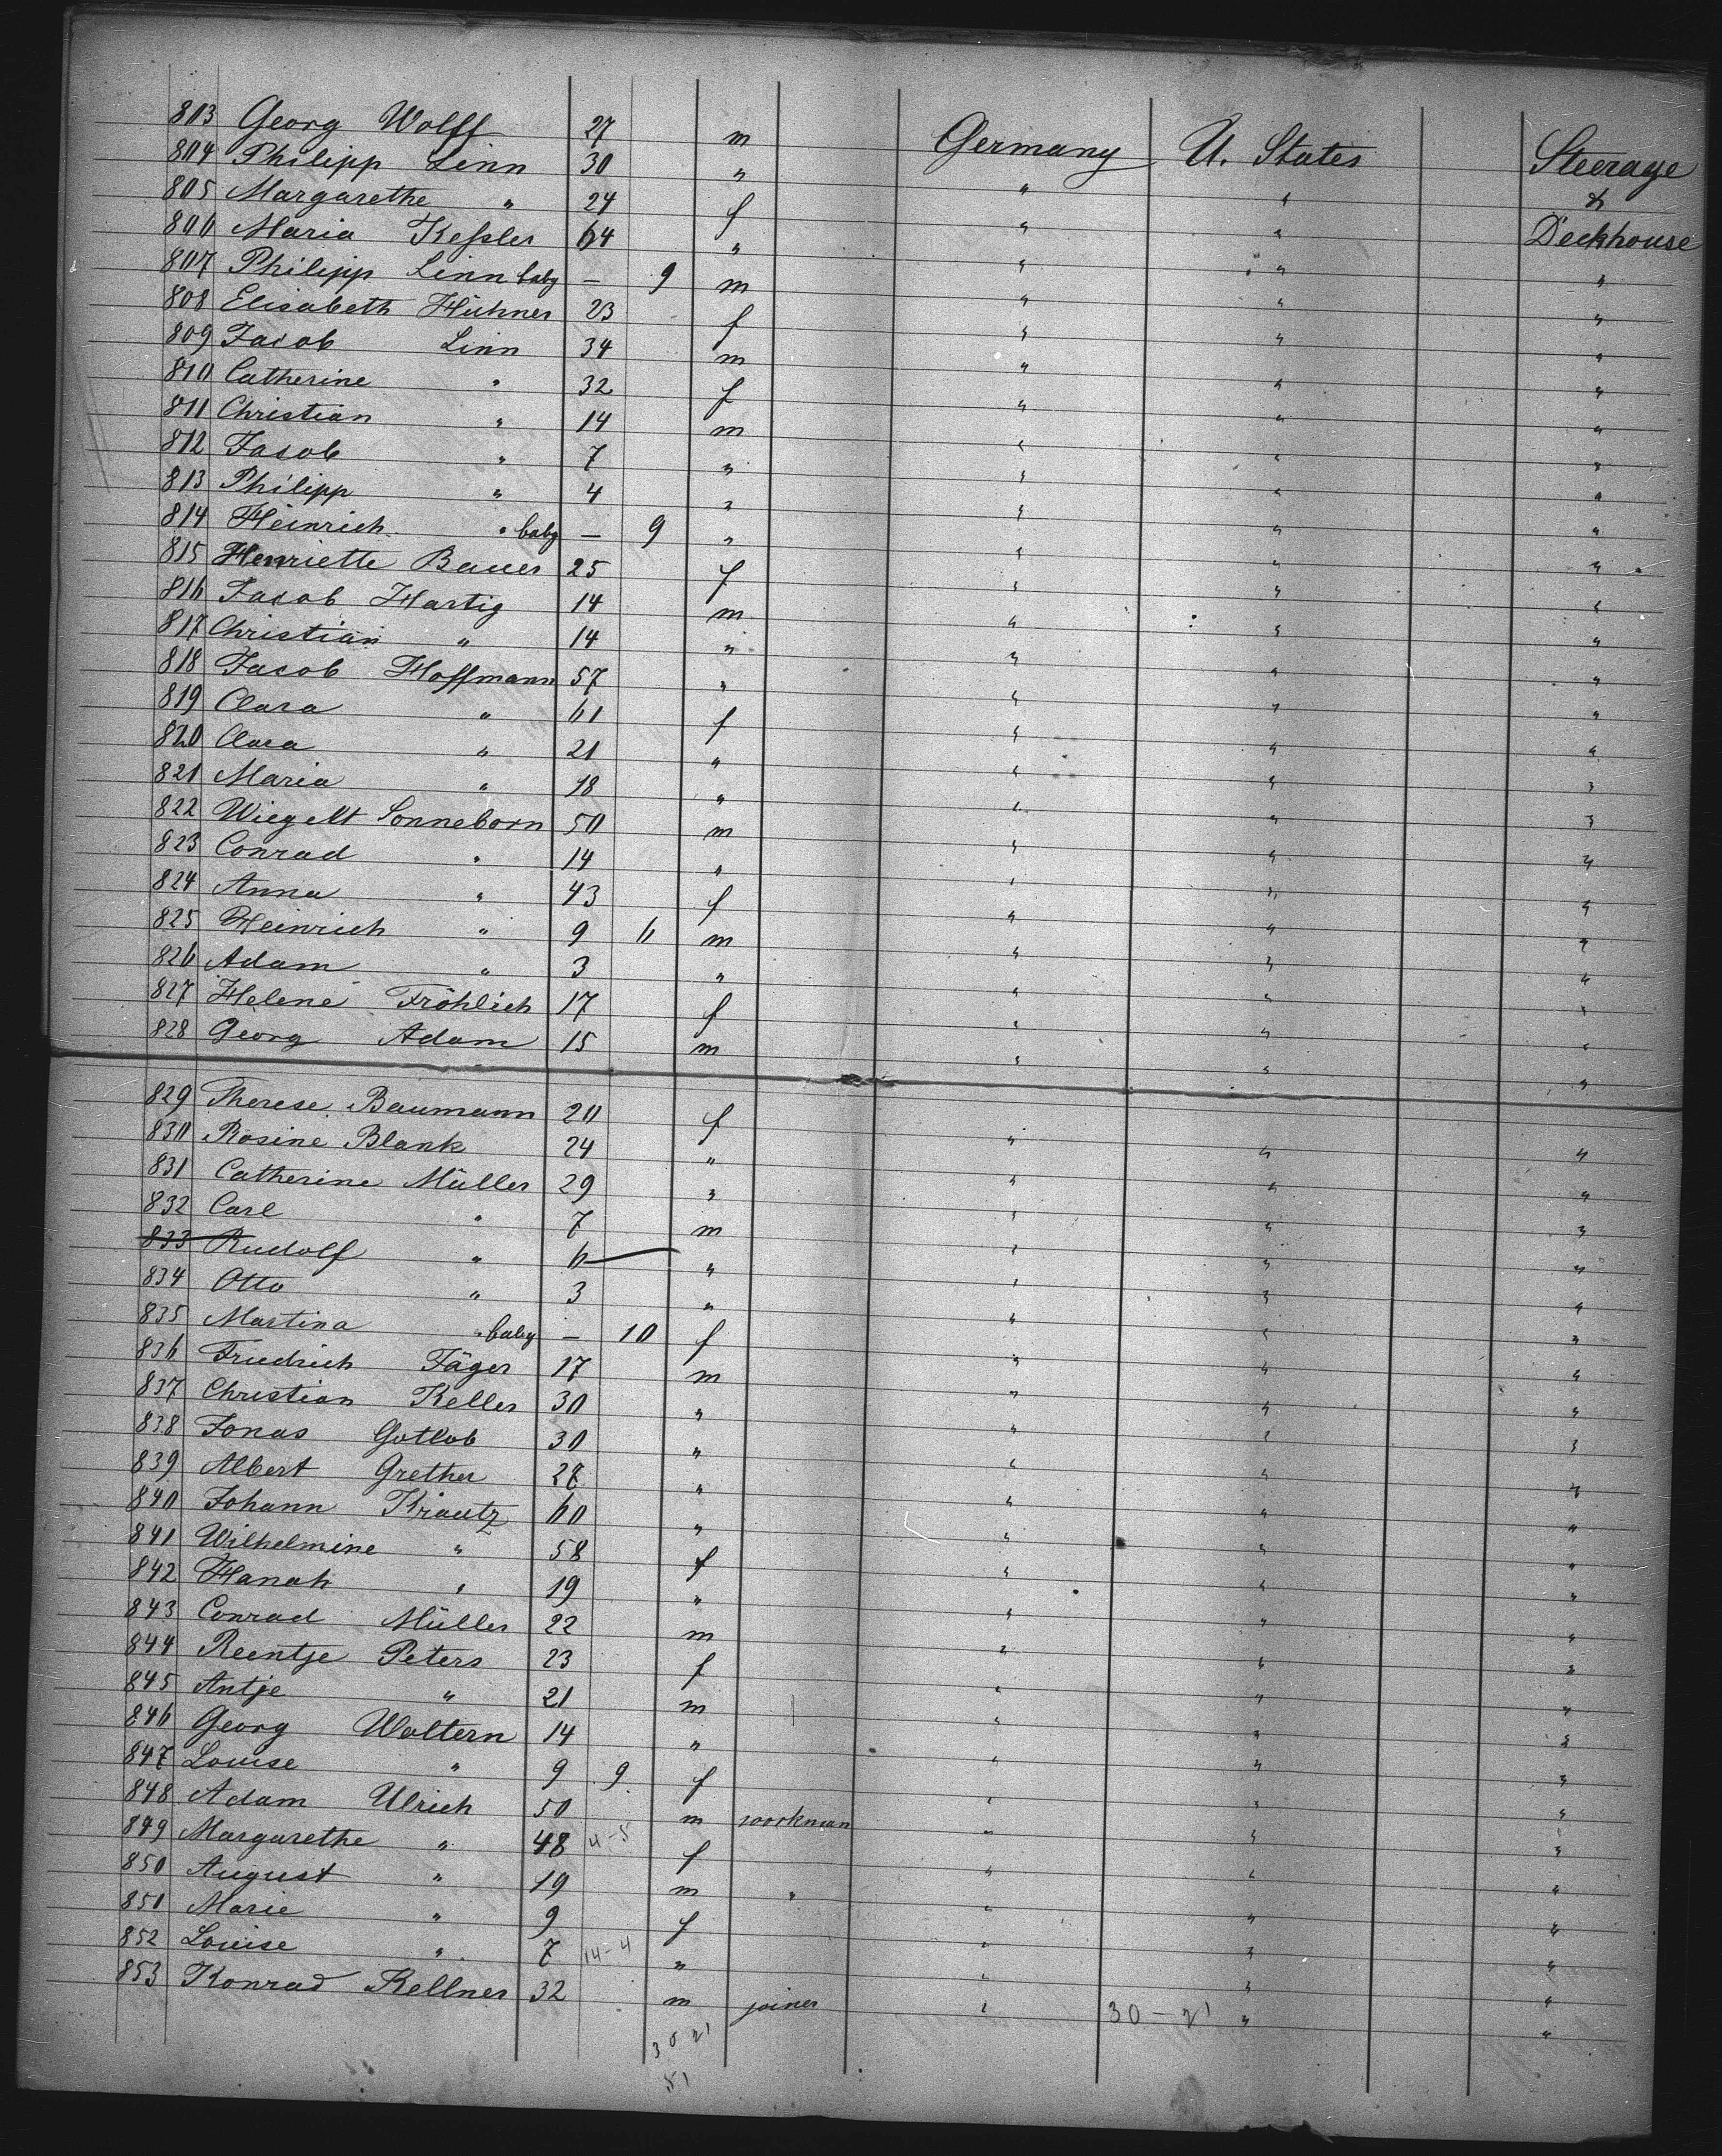 803 Georg Wolff 27 m Germany U. States Steerage
804 Philipp Linn 30 " " " &
805 Margarethe " 24 f " " Deckhouse
806 Maria Keßler 64 " " " "
807 Philipp Linn baby — 9 m " " "
808 Elisabeth Hühner 23 f " " "
809 Jacob Linn 34 m " " "
810 Catherine " 32 f " " "
811 Christian " 14 m " " "
812 Jacob " 7 " " " "
813 Philipp " 4 " " " "
814 Heinrich " baby — 9 " " " "
815 Henriette Bauer 25 f " " "
816 Jacob Hartig 14 m " " "
817 Christian " 14 " " " "
818 Jacob Hoffmann 57 " " " "
819 Clara " 61 f " " "
820 Clara " 21 " " " "
821 Maria " 18 " " " "
822 Wiegelt Sonneborn 50 m " " "
823 Conrad " 14 " " " "
824 Anna " 43 f " " "
825 Heinrich " 9 6 m " " "
826 Adam " 3 " " " "
827 Helene Fröhlich 17 f " " "
828 Georg Adam 15 m " " "
829 Therese Baumann 20 f " " "
830 Rosine Blank 24 " " " "
831 Catherine Müller 29 " " " "
832 Carl " 7 m " " "
833 Rudolf " 6 " " " "
834 Otto " 3 " " " "
835 Martina " baby — 10 f " " "
836 Friedrich Jäger 17 m " " "
837 Christian Keller 30 " " " "
838 Jonas Gotlob 30 " " " "
839 Albert Grether 27 " " " "
840 Johann Krautz 60 " " " "
841 Wilhelmine " 58 f " " "
842 Hanah " 19 " " " "
843 Conrad Müller 22 m " " "
844 Reentje Peters 23 f " " "
845 Antje " 21 m " " "
846 Georg Woltern 14 " " " "
847 Louise " 9 9 f " " "
848 Adam Ulrich 50 m workman " " "
849 Margarethe " 48 4-5 f " " "
850 August " 19 m " " " "
850 Marie " 9 f " " "
852 Louise " 7 14-4 " " " "
853 Konrad Kellner 32 m joiner " 30-21 " "
30 21
51